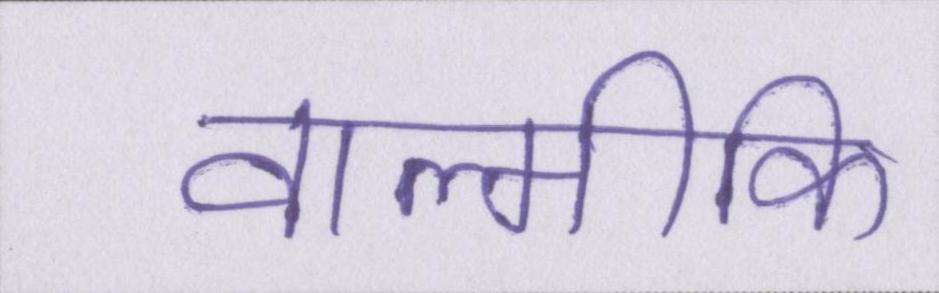 वाल्मीकि